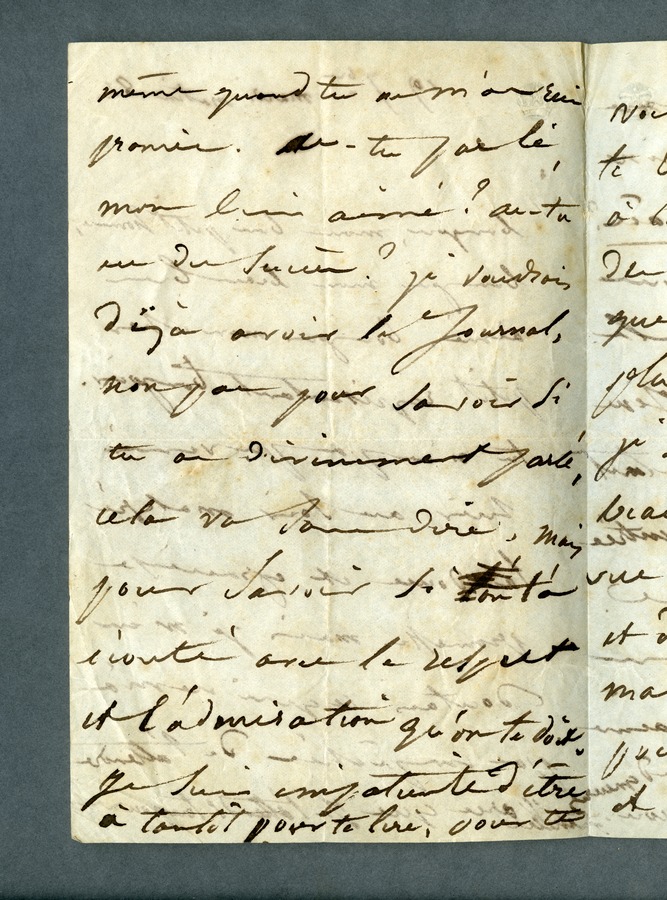 même quand tu ne m'as rien
promis. as-tu parlé,
mon bien aimé? as-tu
eu du succès? je voudrais
déjà avoir le journal,
non pas pour savoir si
tu as divinement parlé,
cela va sans dire, mais
pour savoir si l'on t'a
écouté avec le respect
et l'admiration qu'on te doit.
Je suis impatiente d'être
à tantôt pour te lire, pour te
te
à
que
je
vue
et
et